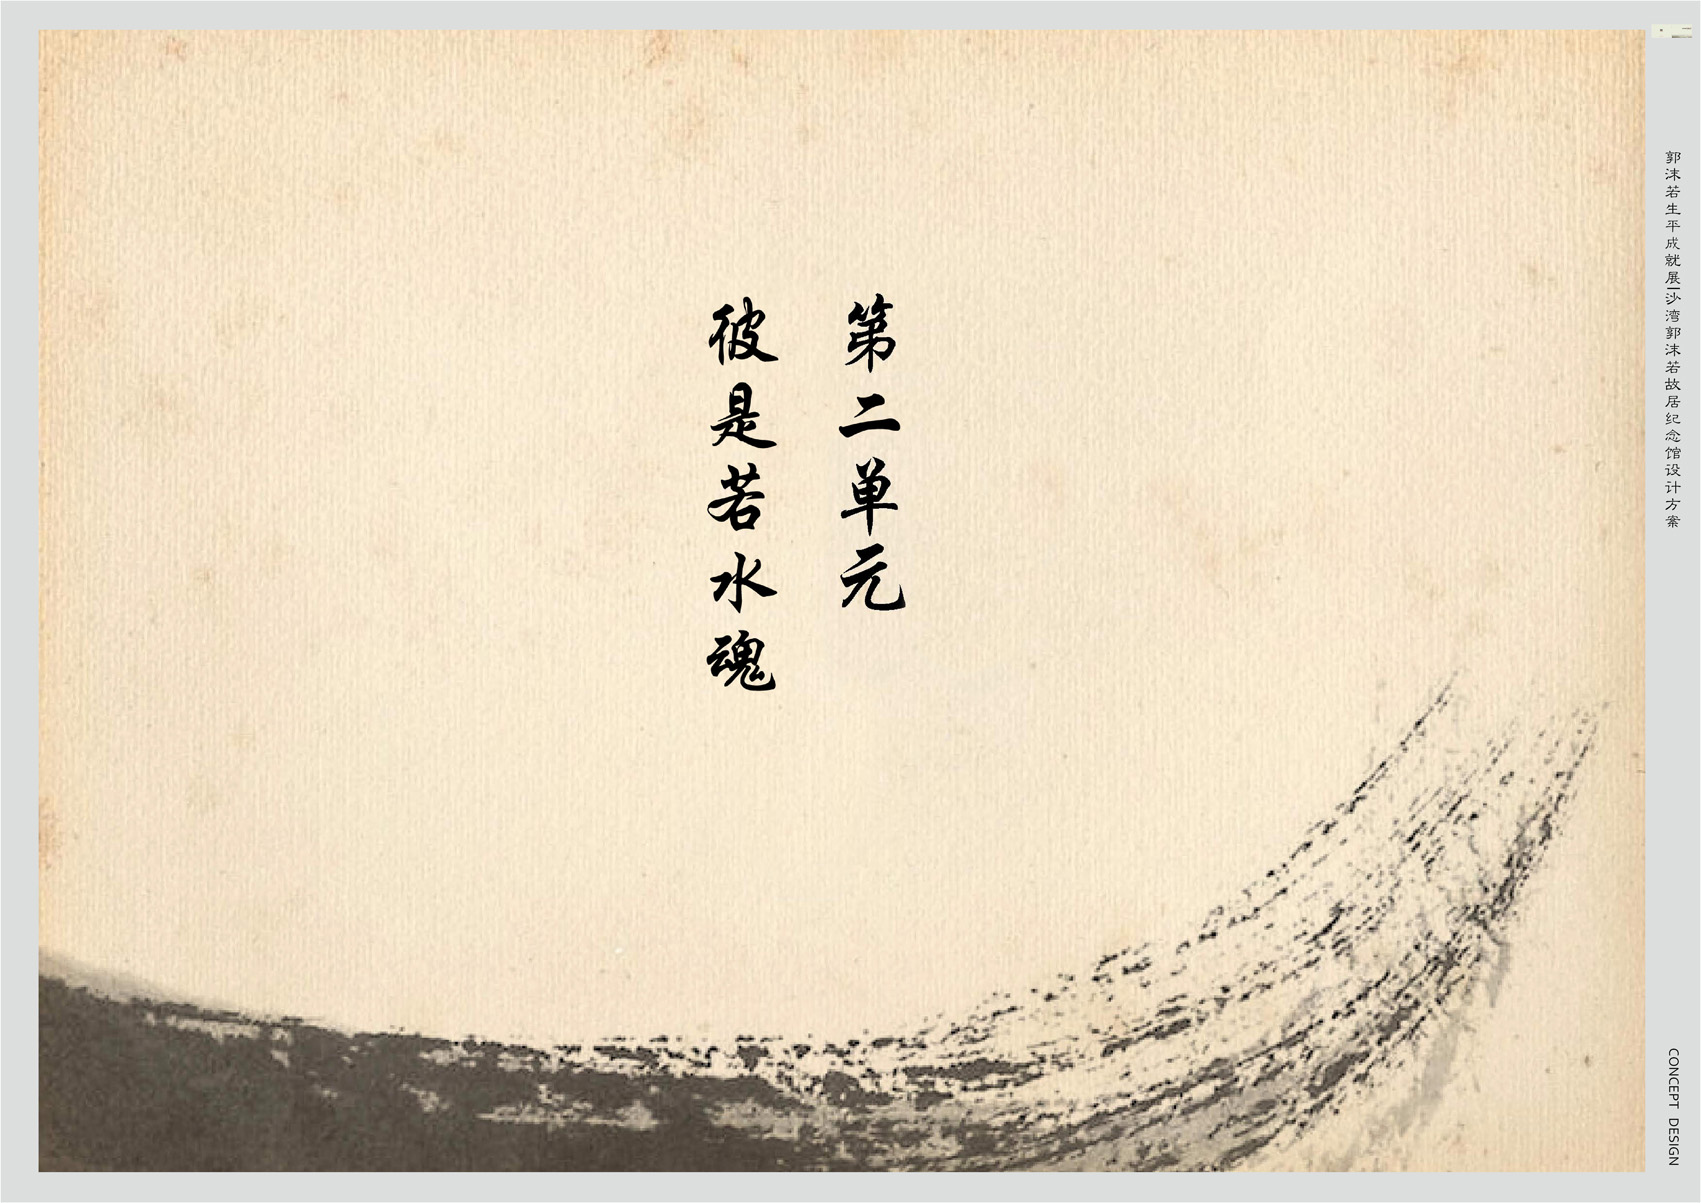 第二单元
彼是若水魂
郭沫若生平成就展|沙湾郭沫若故居纪念馆设计方案
CONCEPT DESIGN